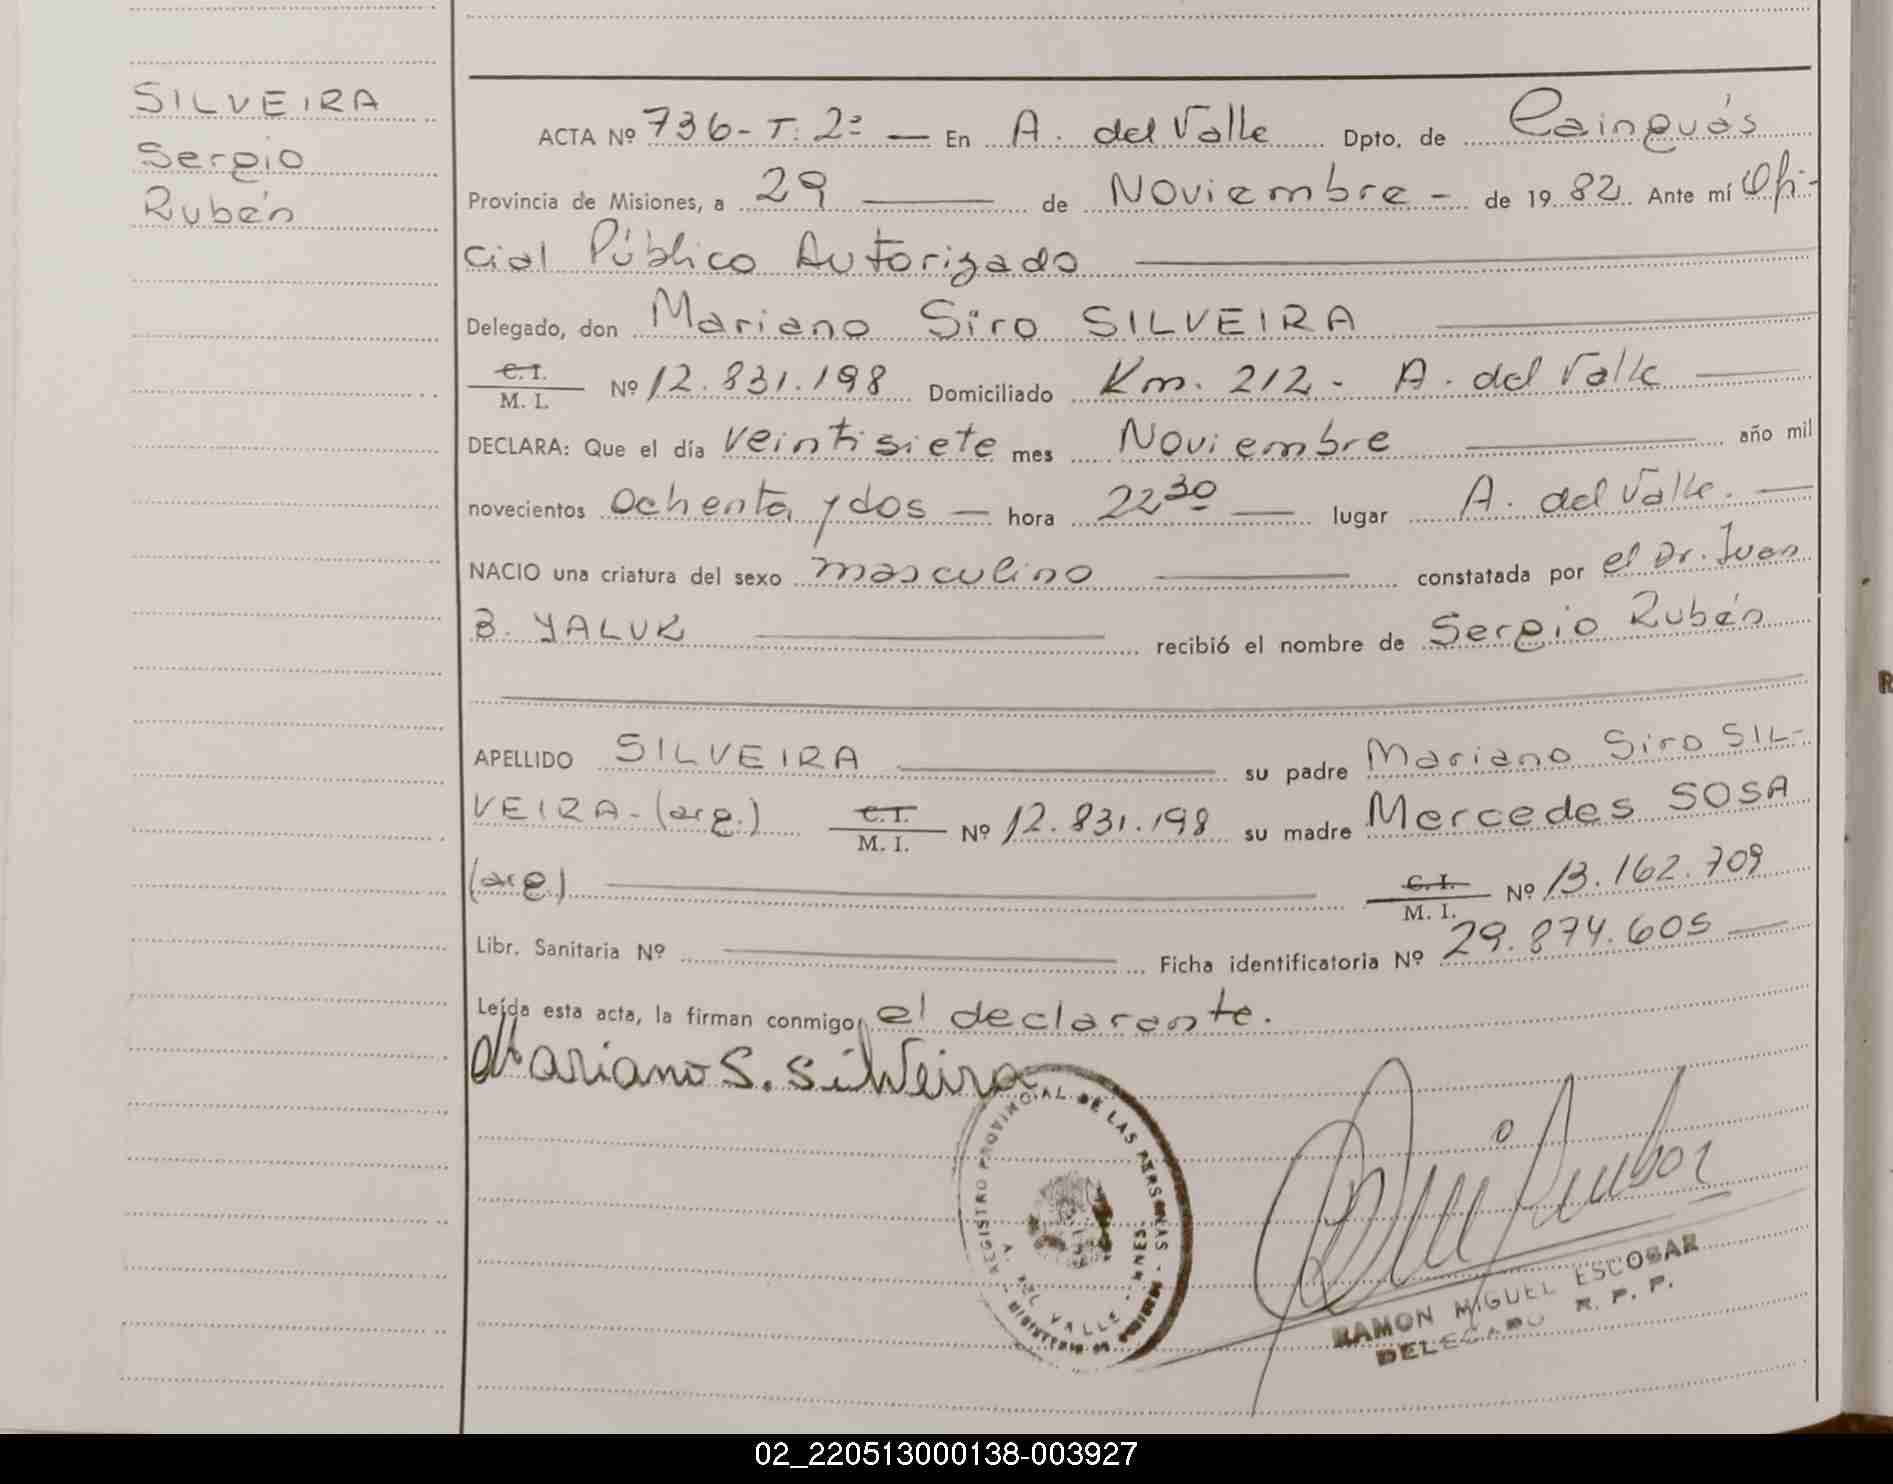 SILVEIRA
Sergio
Rubén
ACTA Nº 736- T: 2º — En A. del Valle Dpto. de Cainguás
Provincia de Misiones, a 29 — de Noviembre - de 19 82. Ante mí Ofi-
cial Público Autorizado
Delegado, don Mariano Siro SILVEIRA
C.I. / M. I. Nº 12.831.198 Domiciliado Km. 212 - A. del Valle
DECLARA: Que el día veintisiete mes Noviembre año mil
novecientos ochenta y dos — hora 22 30 — lugar A. del Valle.
NACIO una criatura del sexo masculino constatada por el Dr. Juan
B. YALUK recibió el nombre de Sergio Rubén
APELLIDO SILVEIRA su padre Mariano Siro SIL-
VEIRA - (arg.) C.I. / M. I. Nº 12.831.198 su madre Mercedes SOSA
(arg.) C.I. / M. I. Nº 13.162.709
Libr. Sanitaria Nº Ficha identificatoria Nº 29.874.605
Leída esta acta, la firman conmigo, el declarante.
Mariano S. Silveira
REGISTRO PROVINCIAL DE LAS PERSONAS
A. DEL VALLE
RAMON MIGUEL ESCOBAR
DELEGADO R. P. P.
02_220513000138-003927